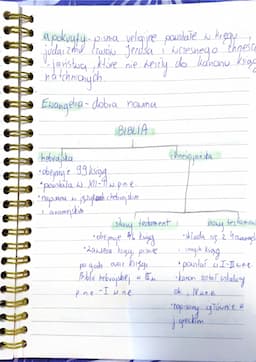 Apokryfy - pisma religijne powstałe w kręgu
judaizmu czasów Jezusa i wczesnego chrześci-
- jaństwa, które nie weszły do kanonu ksiąg
natchnionych.
Ewangelia - dobra nowina
BIBLIA
hebrajska
chrześcijańska
• obejmuje 39 ksiąg
• powstała w XII-II w p.n.e.
• napisana w hebrajskim
i aramejskim
stary testament
nowy testament
• obejmuje 46 ksiąg
• składa się z 4 ewangelii
• zawiera księgi
i innych ksiąg
oraz księgi
• powstał w I-II w n.e.
Biblii hebrajskiej
• kanon został ustalony
p.n.e - I w n.e
ok. IV w n.e.
• napisany głównie w
j. greckim